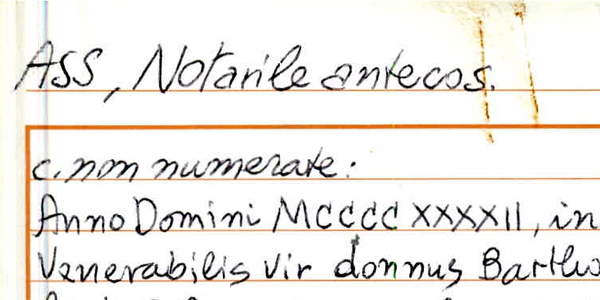 ASS, Notarile antecos.
c. non numerate:
Anno Domini MCCCC XXXXII, in
Venerabilis vir donnus Bartho